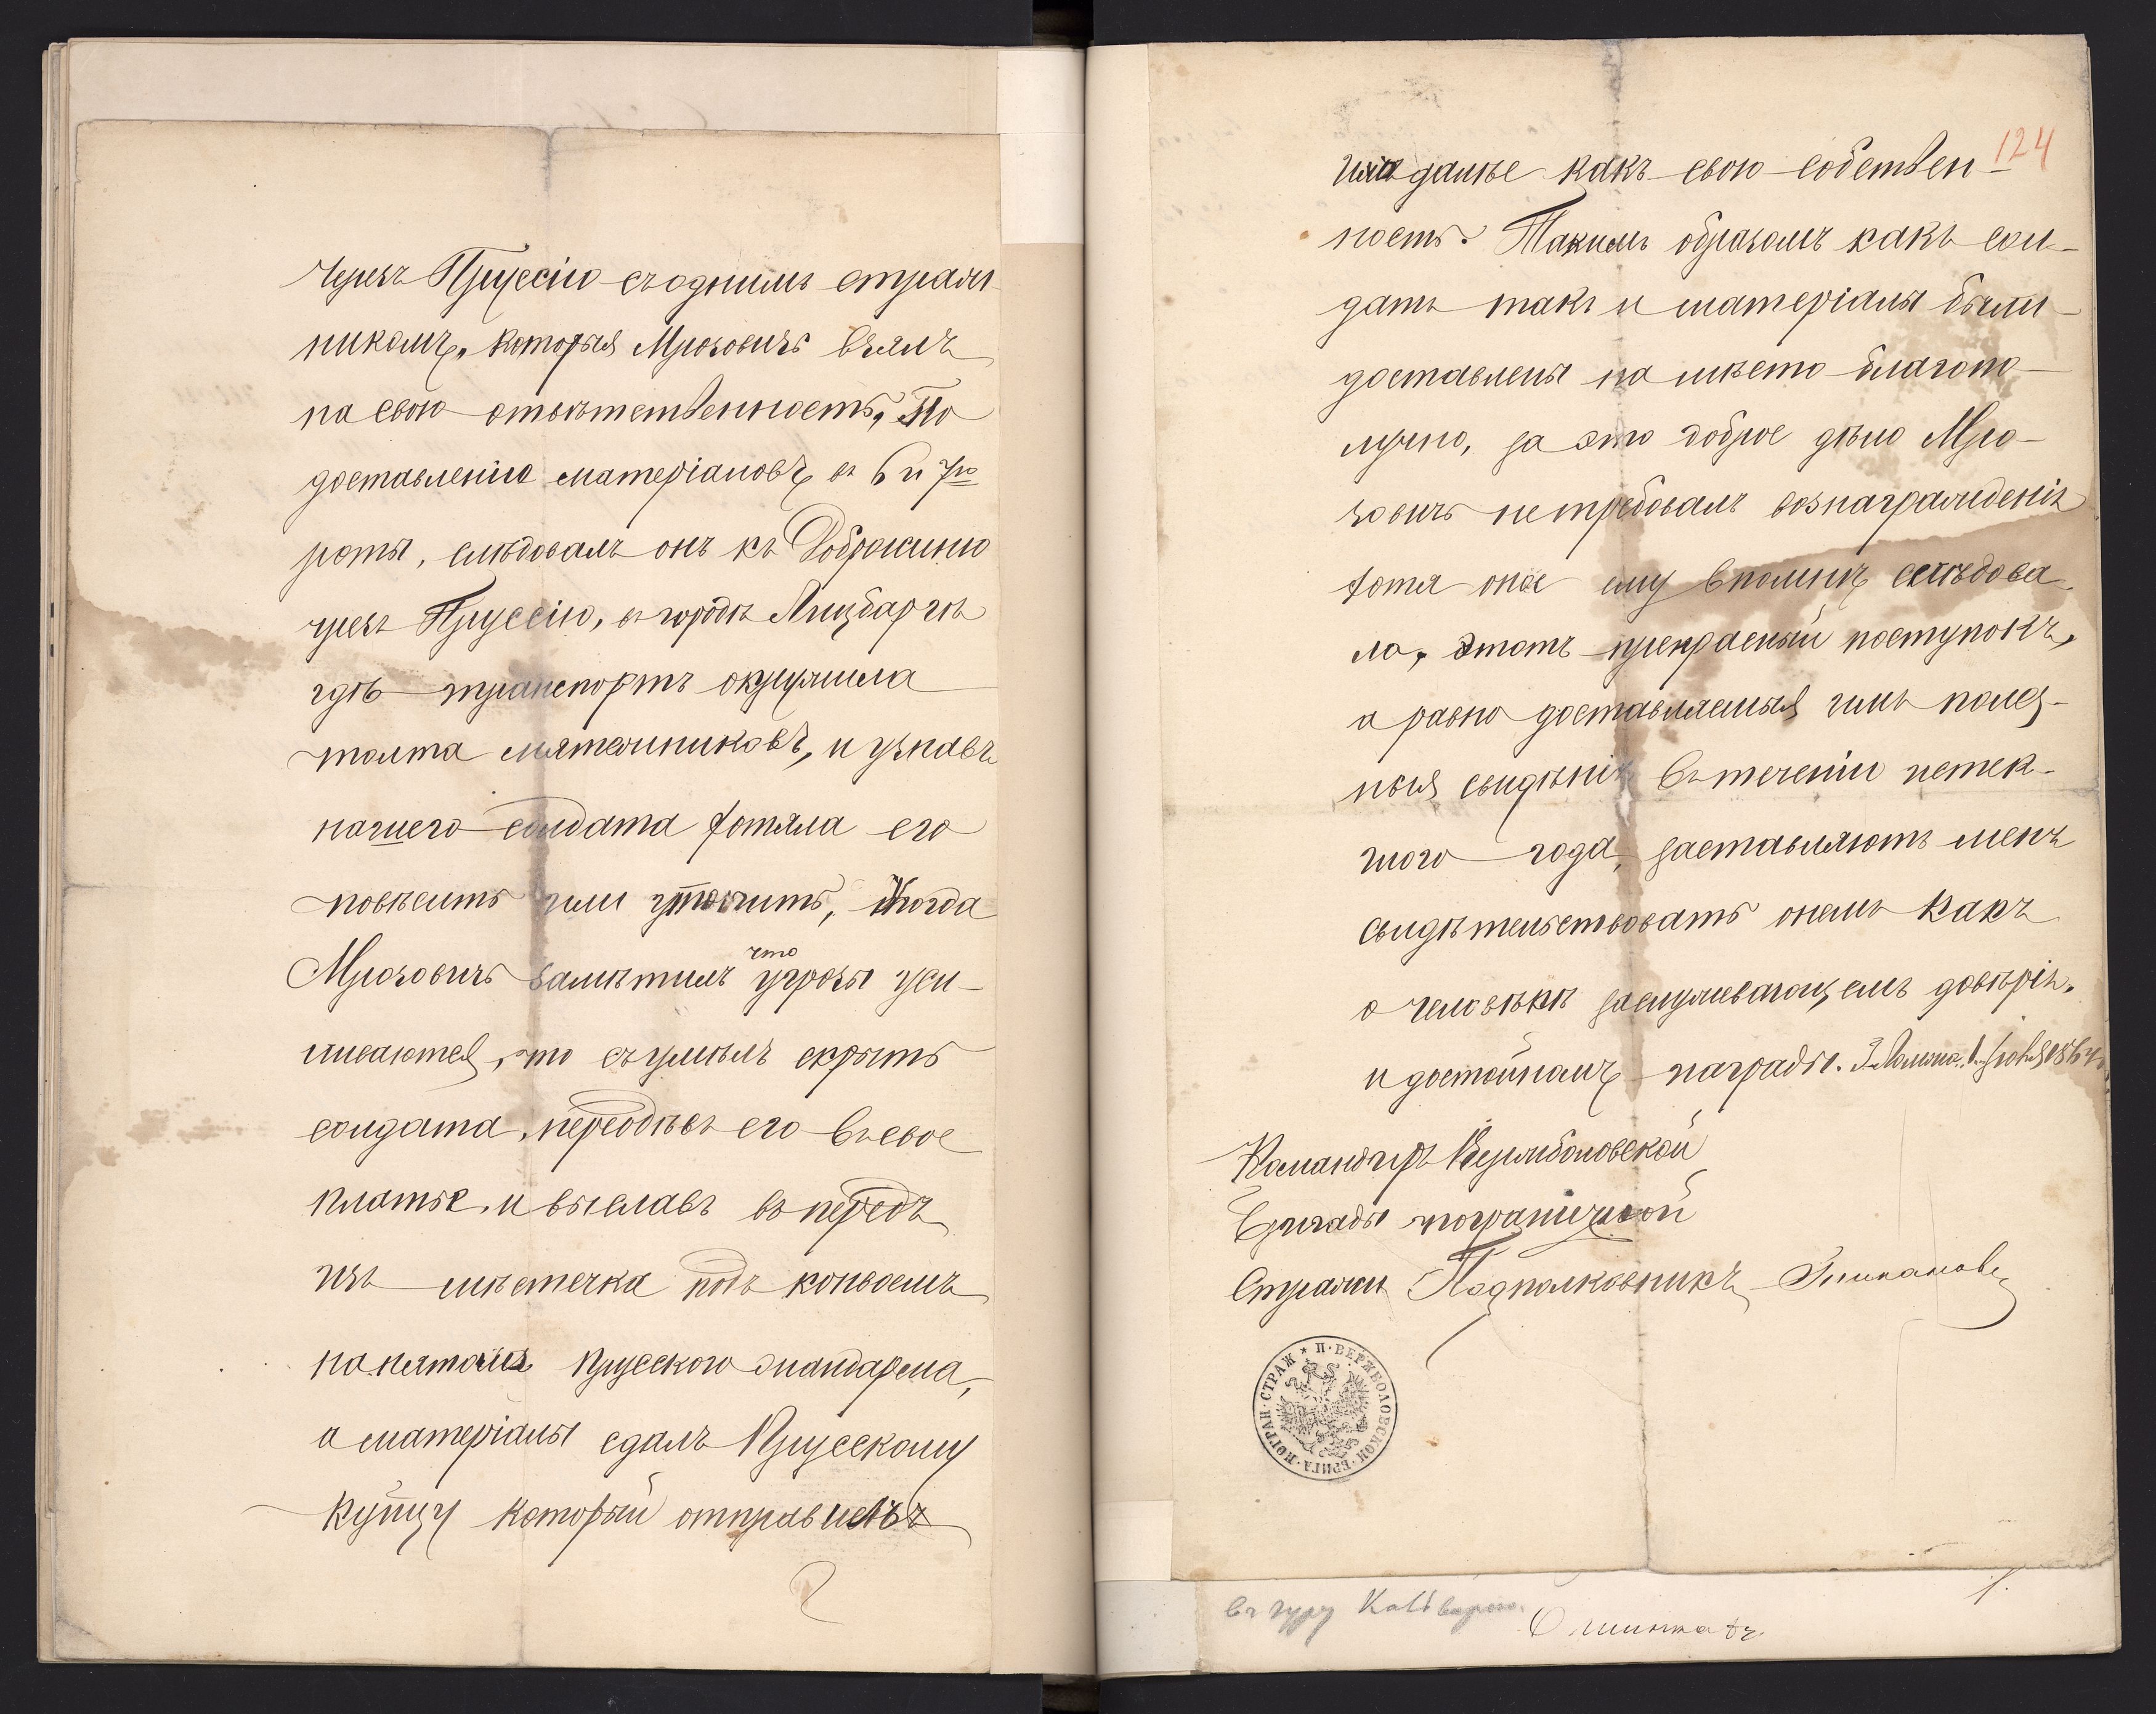 Чрезъ Пруссію съ однимъ стражни
комъ, которыя Мрозовичъ взялъ
на свою отвѣтственность, По
доставленію матеріаловъ въ 6 и 7ю
роты, слѣдовалъ онъ къ Доброжину
чрезъ Пруссію, въ городѣ Лицбаргѣ
гдѣ транспортъ окружила
толпа мятежниковъ, и узнавъ
нашего солдата хотяла его
повѣсить или утопить, Когда
Мрозовичъ замѣтилъ что угрозы уси-
ливаются, то съумѣлъ скрыть
солдата, переодѣвъ его въ свое
платье, и выславъ въ передъ
изъ мѣстечка подъ конвоемъ
нанятаго Прусскаго жандарма,
а матеріалы сдалъ Прусскому
купцу который отправилъ
ихъ далѣе какъ свою собствен-
124
ность. Такимъ образомъ какъ сол-
датъ такъ и матеріалы были
доставлены на мѣсто благопо-
лучно, за это доброе дѣло Мро-
зовичъ не требовалъ вознагражденія
хотя оное ему вполнѣ слѣдова
ло, Этотъ прекрасный поступокъ,
а равно доставляемыя имъ полез-
ныя свидѣнія въ теченіи истек-
шаго года, заставляютъ меня
свидѣтельствовать онемъ какъ
о человѣкѣ заслуживающемъ довѣрія,
и достойномъ награды. 1 Іюня 1864
Командиръ Вержболовской
Бригады пограничной
Стражи Подполковникъ
П. ВЕРЖБОЛОВСКОЙ БРИГА. ПОГРАН. СТРАЖ